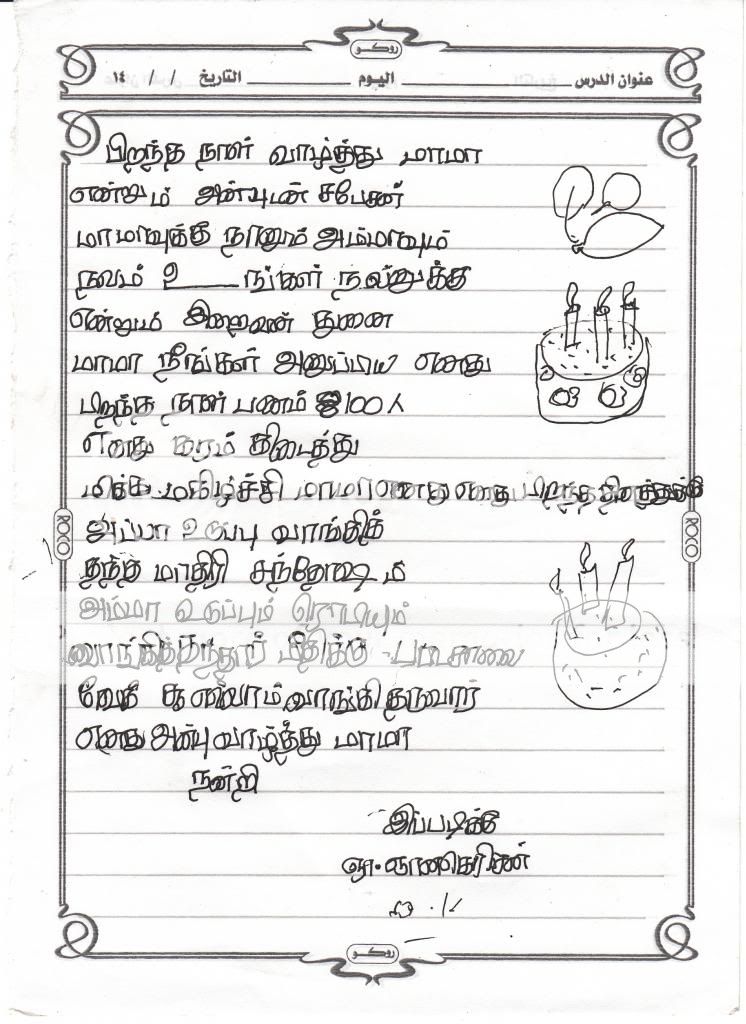 روكو
عنوان الدرس اليوم التاريخ / / ١٤
பிறந்த நாள் வாழ்த்து மாமா
என்றும் அன்புடன்
மாமாவுக்கு நானும் அம்மாவும்
நலம் உ___ நலனுக்கு
என்றும் இறைவன் துணை
மாமா நீங்கள் அனுப்பிய எனது
பிறந்த நாள் பணம் 100
எனது கரம் கிடைத்து
மிக்க மகிழ்ச்சி மாமா எனது பிறந்த தினத்துக்கு
அப்பா உடுப்பு வாங்கித்
ROCO ROCO
தந்த மாதிரி சந்தோஷம்
அம்மா உடுப்பும்
வாங்கித்தந்தார் மீதிக்கு
வாங்கி தருவார்
எனது அன்பு வாழ்த்து மாமா
நன்றி
இப்படிக்கு
روكو